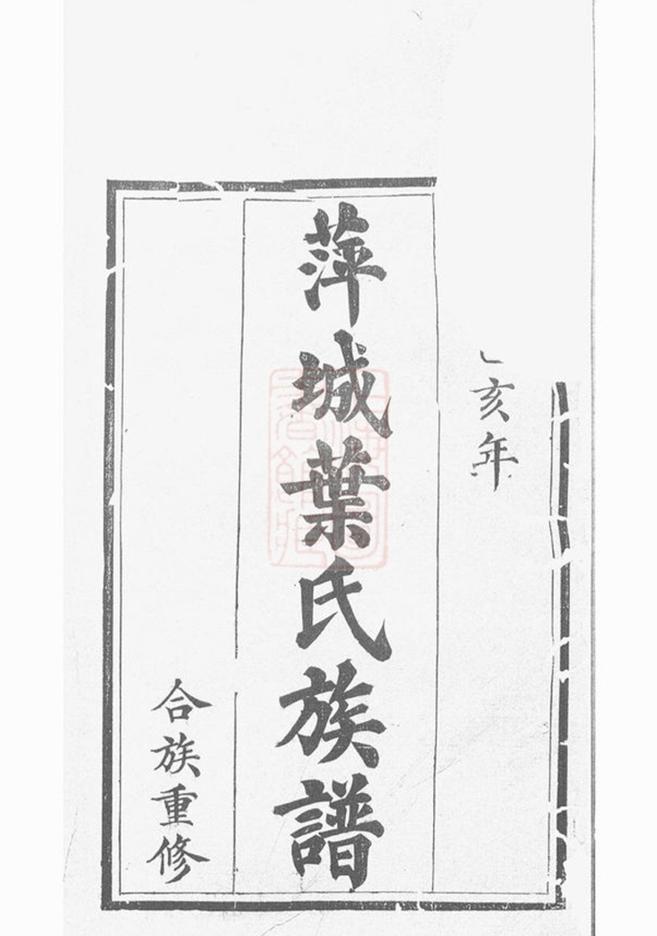 亥年
萍城葉氏族譜
合族重修